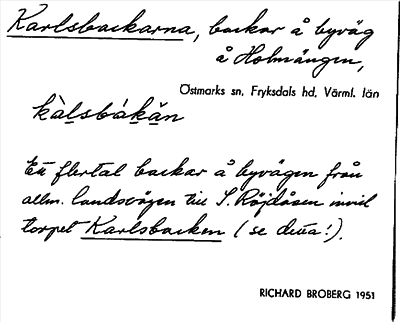 Karlsbackarna, backar å byväg
å Holmängen,
Östmarks sn, Fryksdals hd, Värml. län
kàlsbákän
Ett flertal backar å byvägen från
allm. landsvägen till S. Röjdåsen invid
torpet Karlsbacken (se detta!).
RICHARD BROBERG 1951